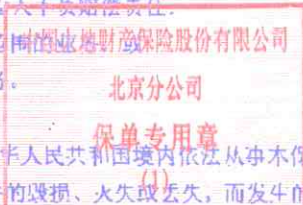 人不负赔偿责任:
大地财产保险股份有限公司
北京分公司
保单专用章
华人民共和国境内依法从事本保
(1)
的毁损、灭失或丢失，而发生的